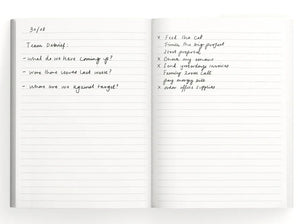 30/08
Team Debrief:
- What do we have coming up?
- Were there issues last week?
- Where are we against target?
x Feed the cat
Finish the big project
Start proposal
x Send yesterdays invoices
Family zoom call
pay energy bill
x order office supplies